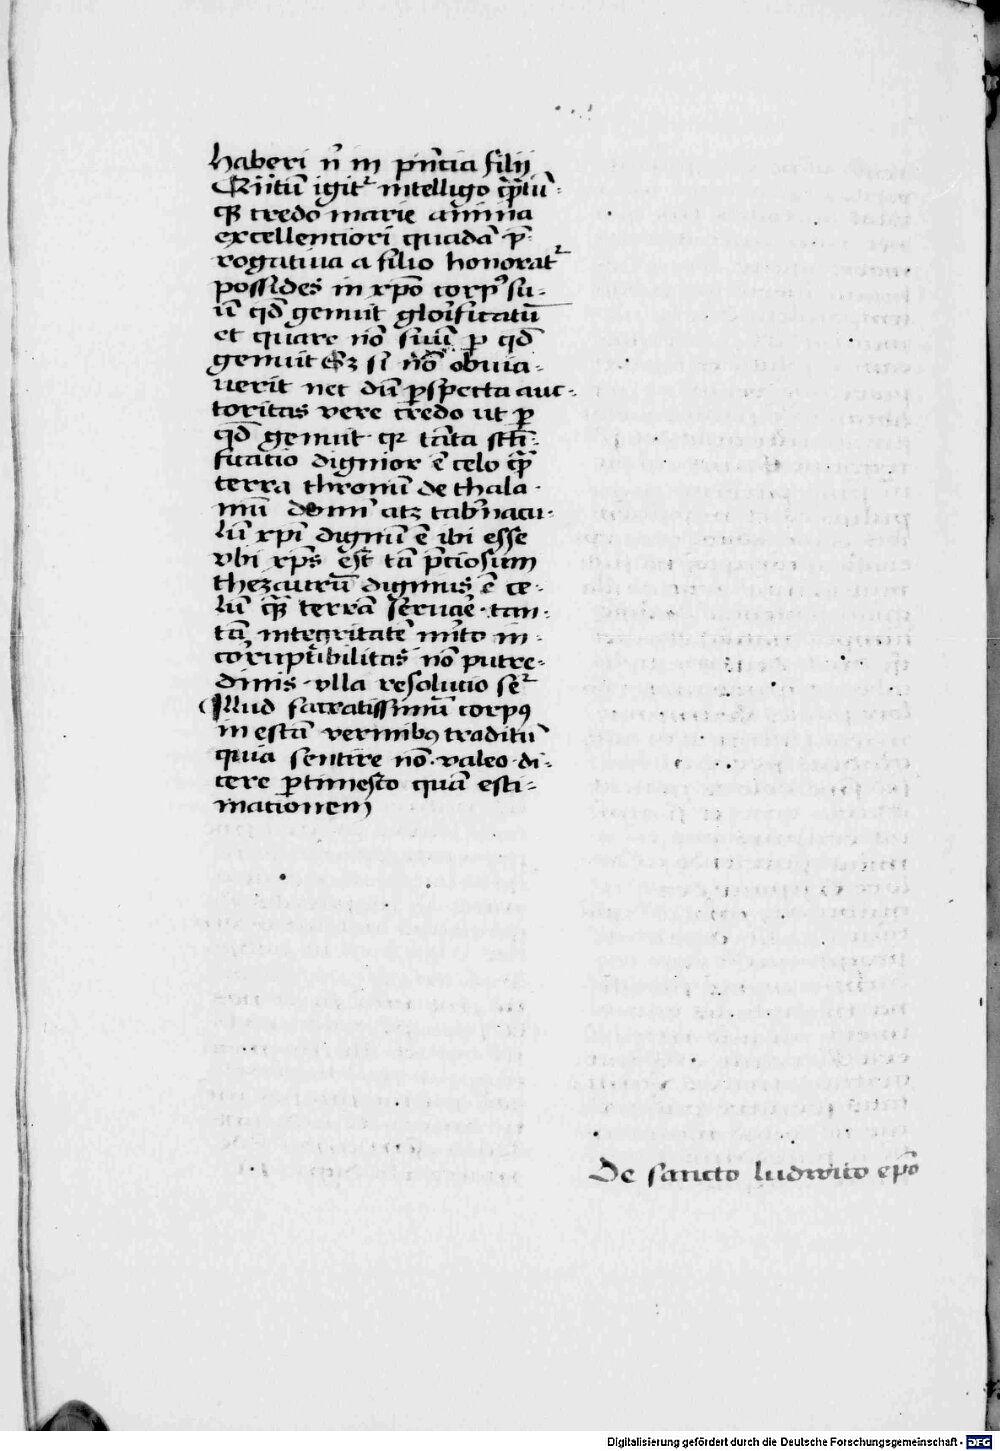 haberi n̄ in pn̄cia filij
Quātū igit᷑ intelligo
qꝫ credo marie anima
excellentiori quadā p̄-
rogatiua a filio honorat᷑
possides in xp̄o corpꝰ su-
ū qd̄ genuit glorificatū
et quare nō suū ꝑ qd̄
genuit Eꝫ si nō obuia-
uerit nec dū ꝑspecta auc-
toritas vere credo ut ꝑ
qd̄ genuit qꝛ tāta scti-
ficatio dignior ē celo qm̄
terra thronū de thala-
mū domī atꝫ tab̄nacu-
lū xpī dignū ē ibi esse
vbi xp̄s est tā p̄ciosum
thezaurū dignius ē ce-
lū qm̄ terrā seruare tan-
tā integritatē mīto in-
corruptibilitas nō putre-
dinis vlla resolucio seq᷑
Illud sacratissimū corpꝰ
in estā vermibꝰ traditū
quia sentire nō valeo di-
cere ꝑtimesco quā esti-
mationem
De sancto ludwico ep̄o
Digitalisierung gefördert durch die Deutsche Forschungsgemeinschaft - DFG